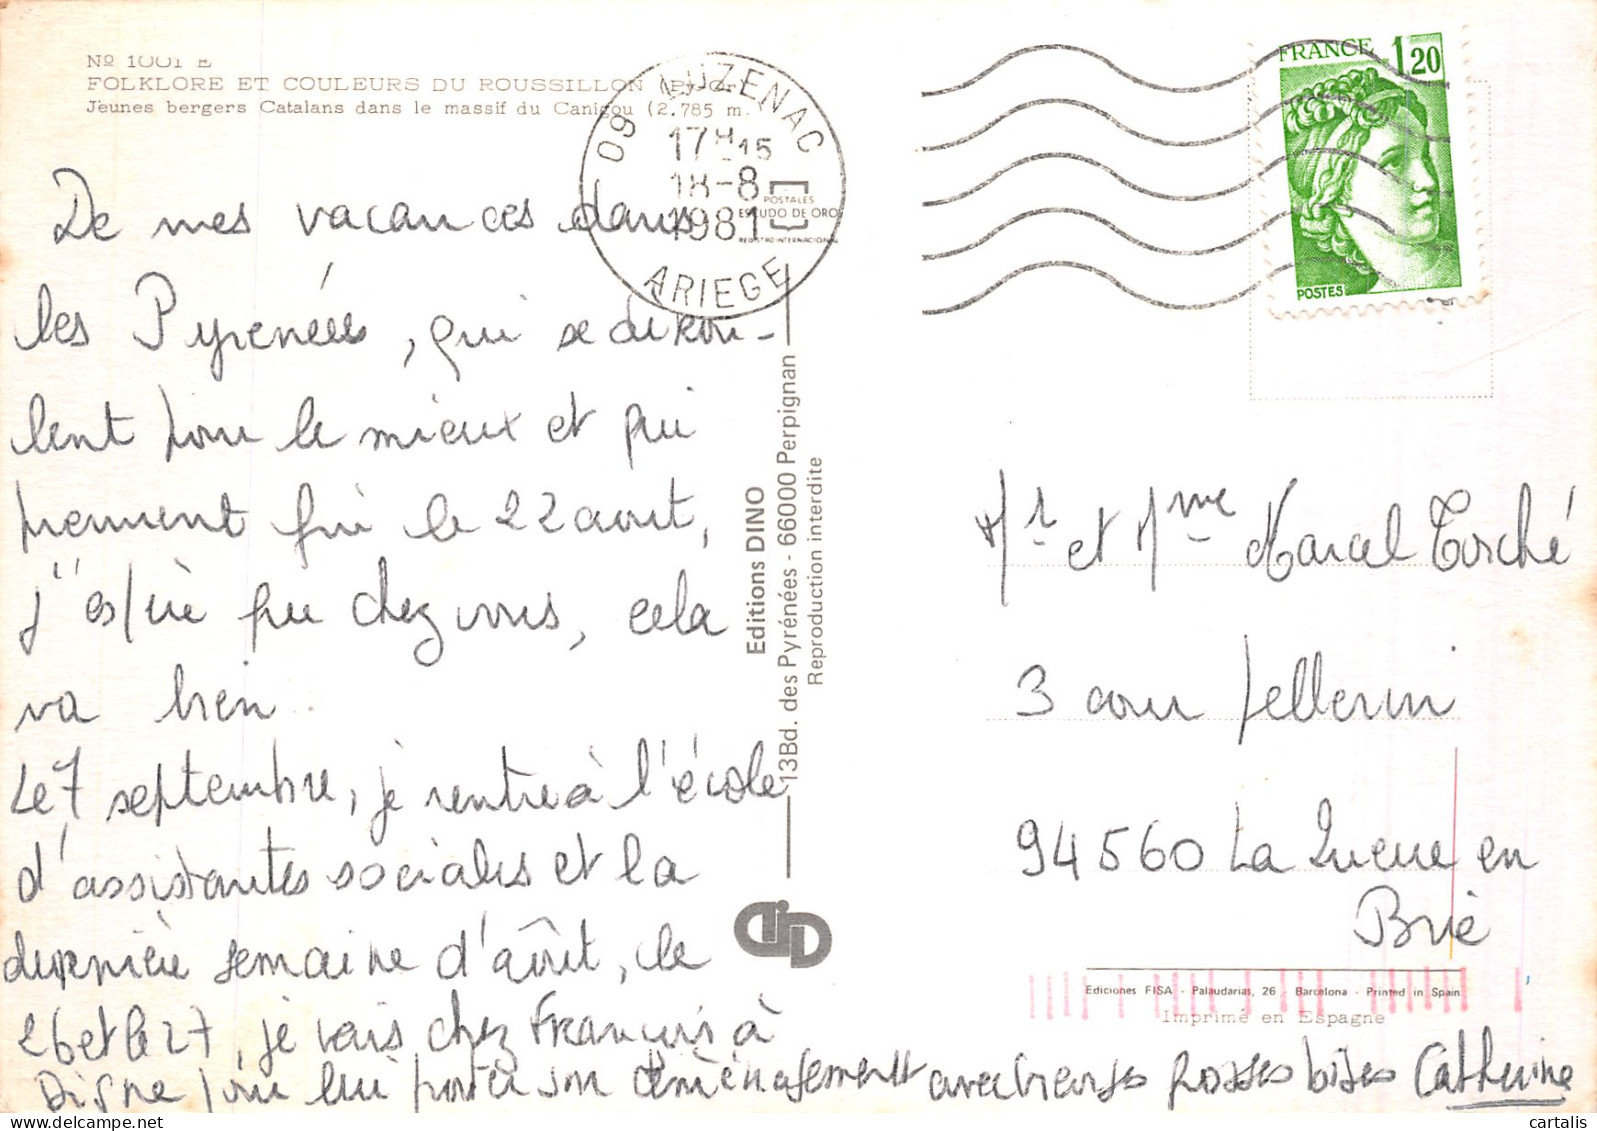 Nº 1001 E
FOLKLORE ET COULEURS DU ROUSSILLON (Py-Or)
Jeunes bergers Catalans dans le massif du Canigou (2.785 m.
09 LUZENAC
17H15
18-8
1981
ARIEGE
POSTALES
ESCUDO DE ORO
REGISTRO INTERNACIONAL
FRANCE 1,20
POSTES
De mes vacances dans
les Pyrénées, qui se dérou-
lent pour le mieux et qui
prennent fin le 22 aout,
j'espère que chez vous, cela
va bien.
Le 7 septembre, je rentre à l'école
d'assistantes sociales et la
dernière semaine d'août, le
26 et le 27, je vais chez François à
Digne pour lui porter son déménagement avec bien grosses bises Catherine
Editions DINO
13Bd. des Pyrénées - 66000 Perpignan
Reproduction interdite
Mr et Mme Marcel Torché
3 cour Pellerin
94560 La Queue en
Brie
Ediciones FISA - Palaudarias, 26 - Barcelona - Printed in Spain
Imprimé en Espagne
cartalis